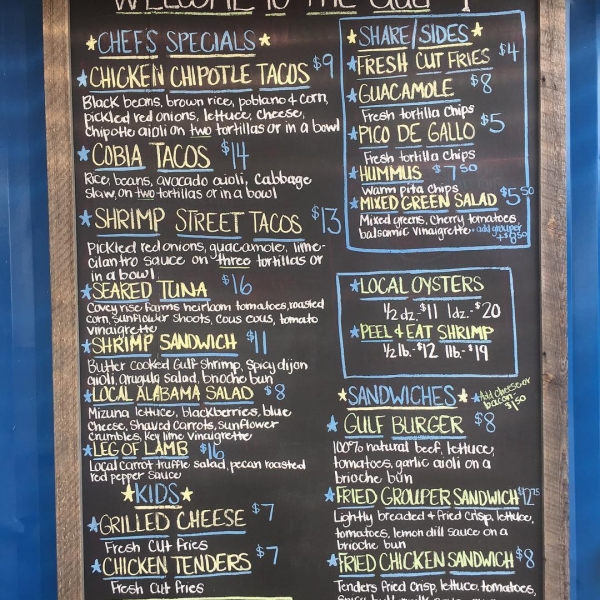 WELCOME TO THE GULF
CHEF'S SPECIALS
CHICKEN CHIPOTLE TACOS $9
Black beans, brown rice, poblano & corn,
pickled red onions, lettuce, cheese,
chipotle aioli on two tortillas or in a bowl
COBIA TACOS $14
Rice, beans, avocado aioli, Cabbage
slaw, on two tortillas or in a bowl
SHRIMP STREET TACOS $13
Pickled red onions, guacamole, lime-
cilantro sauce on three tortillas or
in a bowl
SEARED TUNA $16
Covey rise Farms heirloom tomatoes, roasted
corn, sunflower shoots, cous cous, tomato
vinaigrette
SHRIMP SANDWICH $11
Butter cooked Gulf Shrimp, Spicy dijon
aioli, arugula salad, brioche bun
LOCAL ALABAMA SALAD $8
Mizuna lettuce, blackberries, blue
cheese, Shaved carrots, sunflower
crumbles, key lime vinaigrette
LEG OF LAMB $16
Local carrot truffle salad, pecan roasted
red pepper sauce
KIDS
GRILLED CHEESE $7
Fresh cut fries
CHICKEN TENDERS $7
Fresh cut fries
SHARE/SIDES
FRESH CUT FRIES $4
GUACAMOLE $8
Fresh tortilla chips
PICO DE GALLO $5
Fresh tortilla chips
HUMMUS $7.50
Warm pita chips
MIXED GREEN SALAD $5.50
Mixed greens, cherry tomatoes
balsamic vinaigrette · add grouper
+$8.50
LOCAL OYSTERS
1/2 dz. $11 1dz. $20
PEEL & EAT SHRIMP
1/2 lb. $12 1lb. $19
SANDWICHES
Add cheese or
bacon
$1.50
GULF BURGER $8
100% natural beef, lettuce,
tomatoes, garlic aioli on a
brioche bun
FRIED GROUPER SANDWICH $12.75
Lightly breaded & fried crisp, lettuce,
tomatoes, lemon dill sauce on a
brioche bun
FRIED CHICKEN SANDWICH $8
Tenders fried crisp, lettuce, tomatoes,